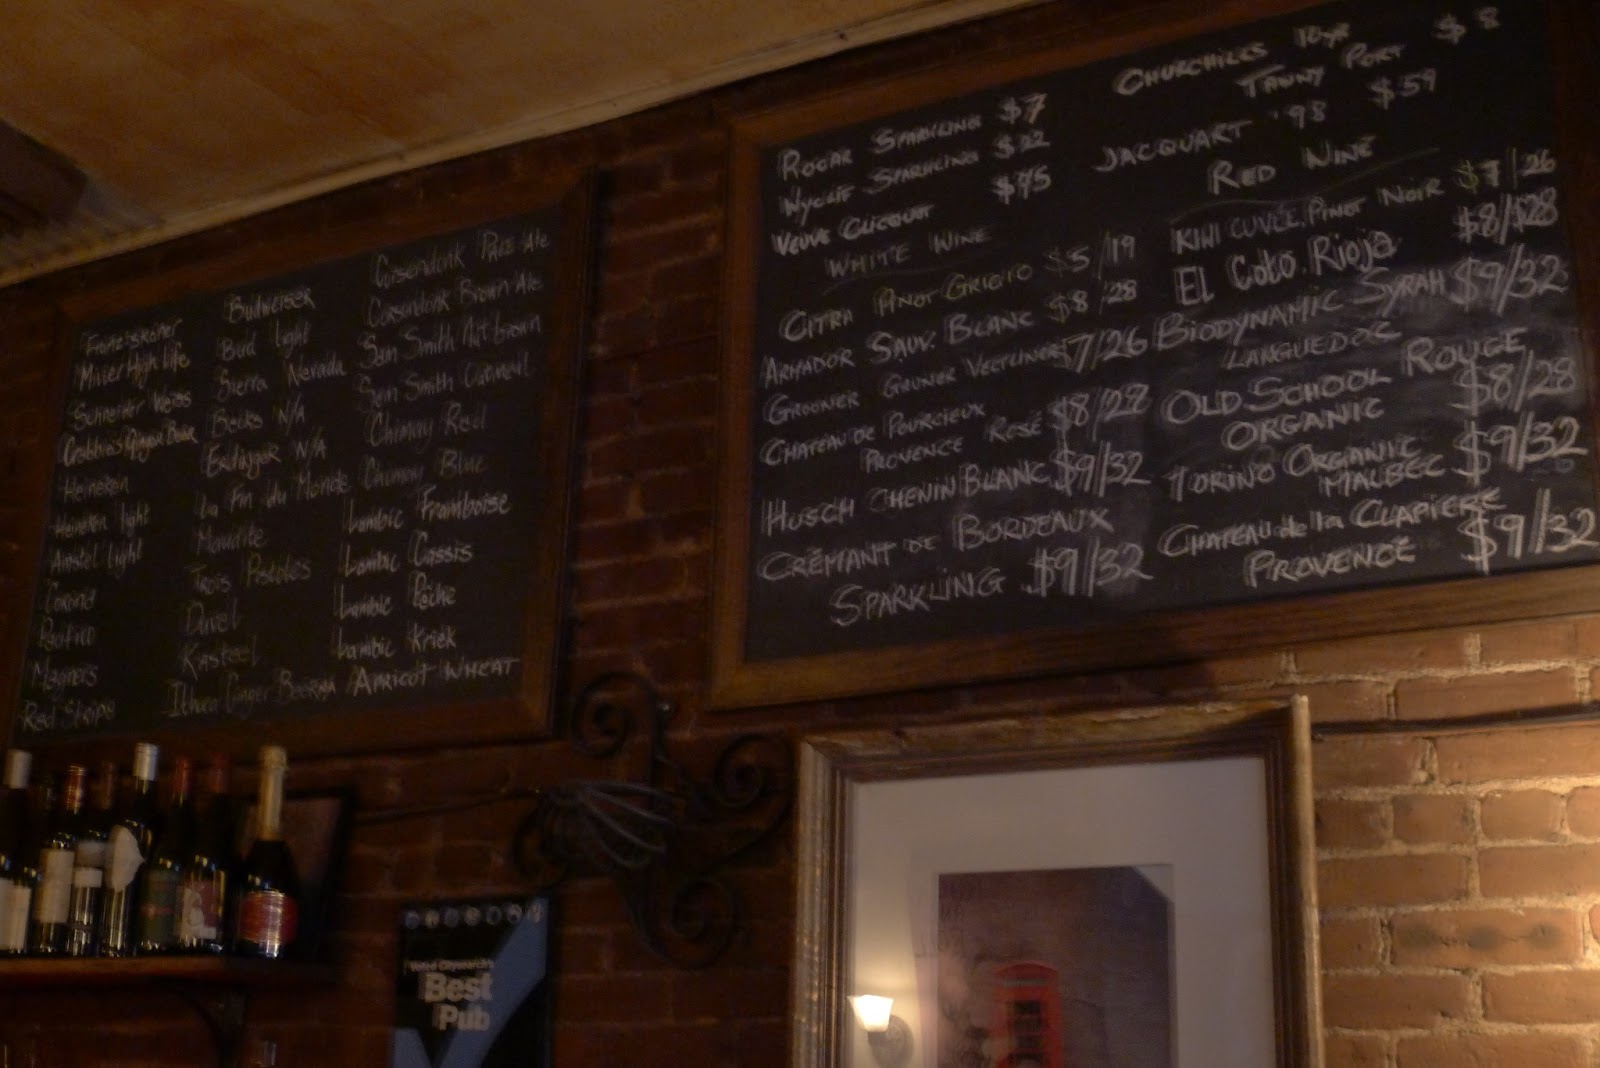 Franziskaner
Miller High Life
Schneider Weiss
Crabbie's Ginger Beer
Heineken
Heineken light
Amstel light
Corona
Pacifico
Magners
Red Stripe
Budweiser
Bud light
Sierra Nevada
Becks N/A
Erdinger N/A
La Fin du Monde
Maudite
Trois Pistoles
Duvel
Kasteel
Ithaca Ginger Beer
Corsendonk Pale Ale
Corsendonk Brown Ale
Sam Smith Nut brown
Sam Smith Oatmeal
Chimay Red
Chimay Blue
Lambic Framboise
Lambic Cassis
Lambic Pêche
Lambic Kriek
APRICOT WHEAT
ROGAR SPARKLING $7
WYCLIF SPARKLING $22
VEUVE CLICQUOT $75
WHITE WINE
CITRA PINOT GRIGIO $5/19
AMADOR SAUV. BLANC $8/28
GROONER GRUNER VELTLINER $7/26
CHATEAU DE POURCIEUX
PROVENCE ROSÉ $8/28
HUSCH CHENIN BLANC $9/32
CRÉMANT DE BORDEAUX
SPARKLING $9/32
CHURCHILLS 10yr
TAWNY PORT $8
JACQUART '98 $59
RED WINE
KIWI CUVÉE, PINOT NOIR $7/26
EL Coto. Rioja $8/$28
BIODYNAMIC SYRAH $9/32
LANGUEDOC
OLD SCHOOL ROUGE
ORGANIC $8/28
TORINO ORGANIC
MALBEC $9/32
CHATEAU de la CLAPIÈRE
PROVENCE $9/32
Best
Pub